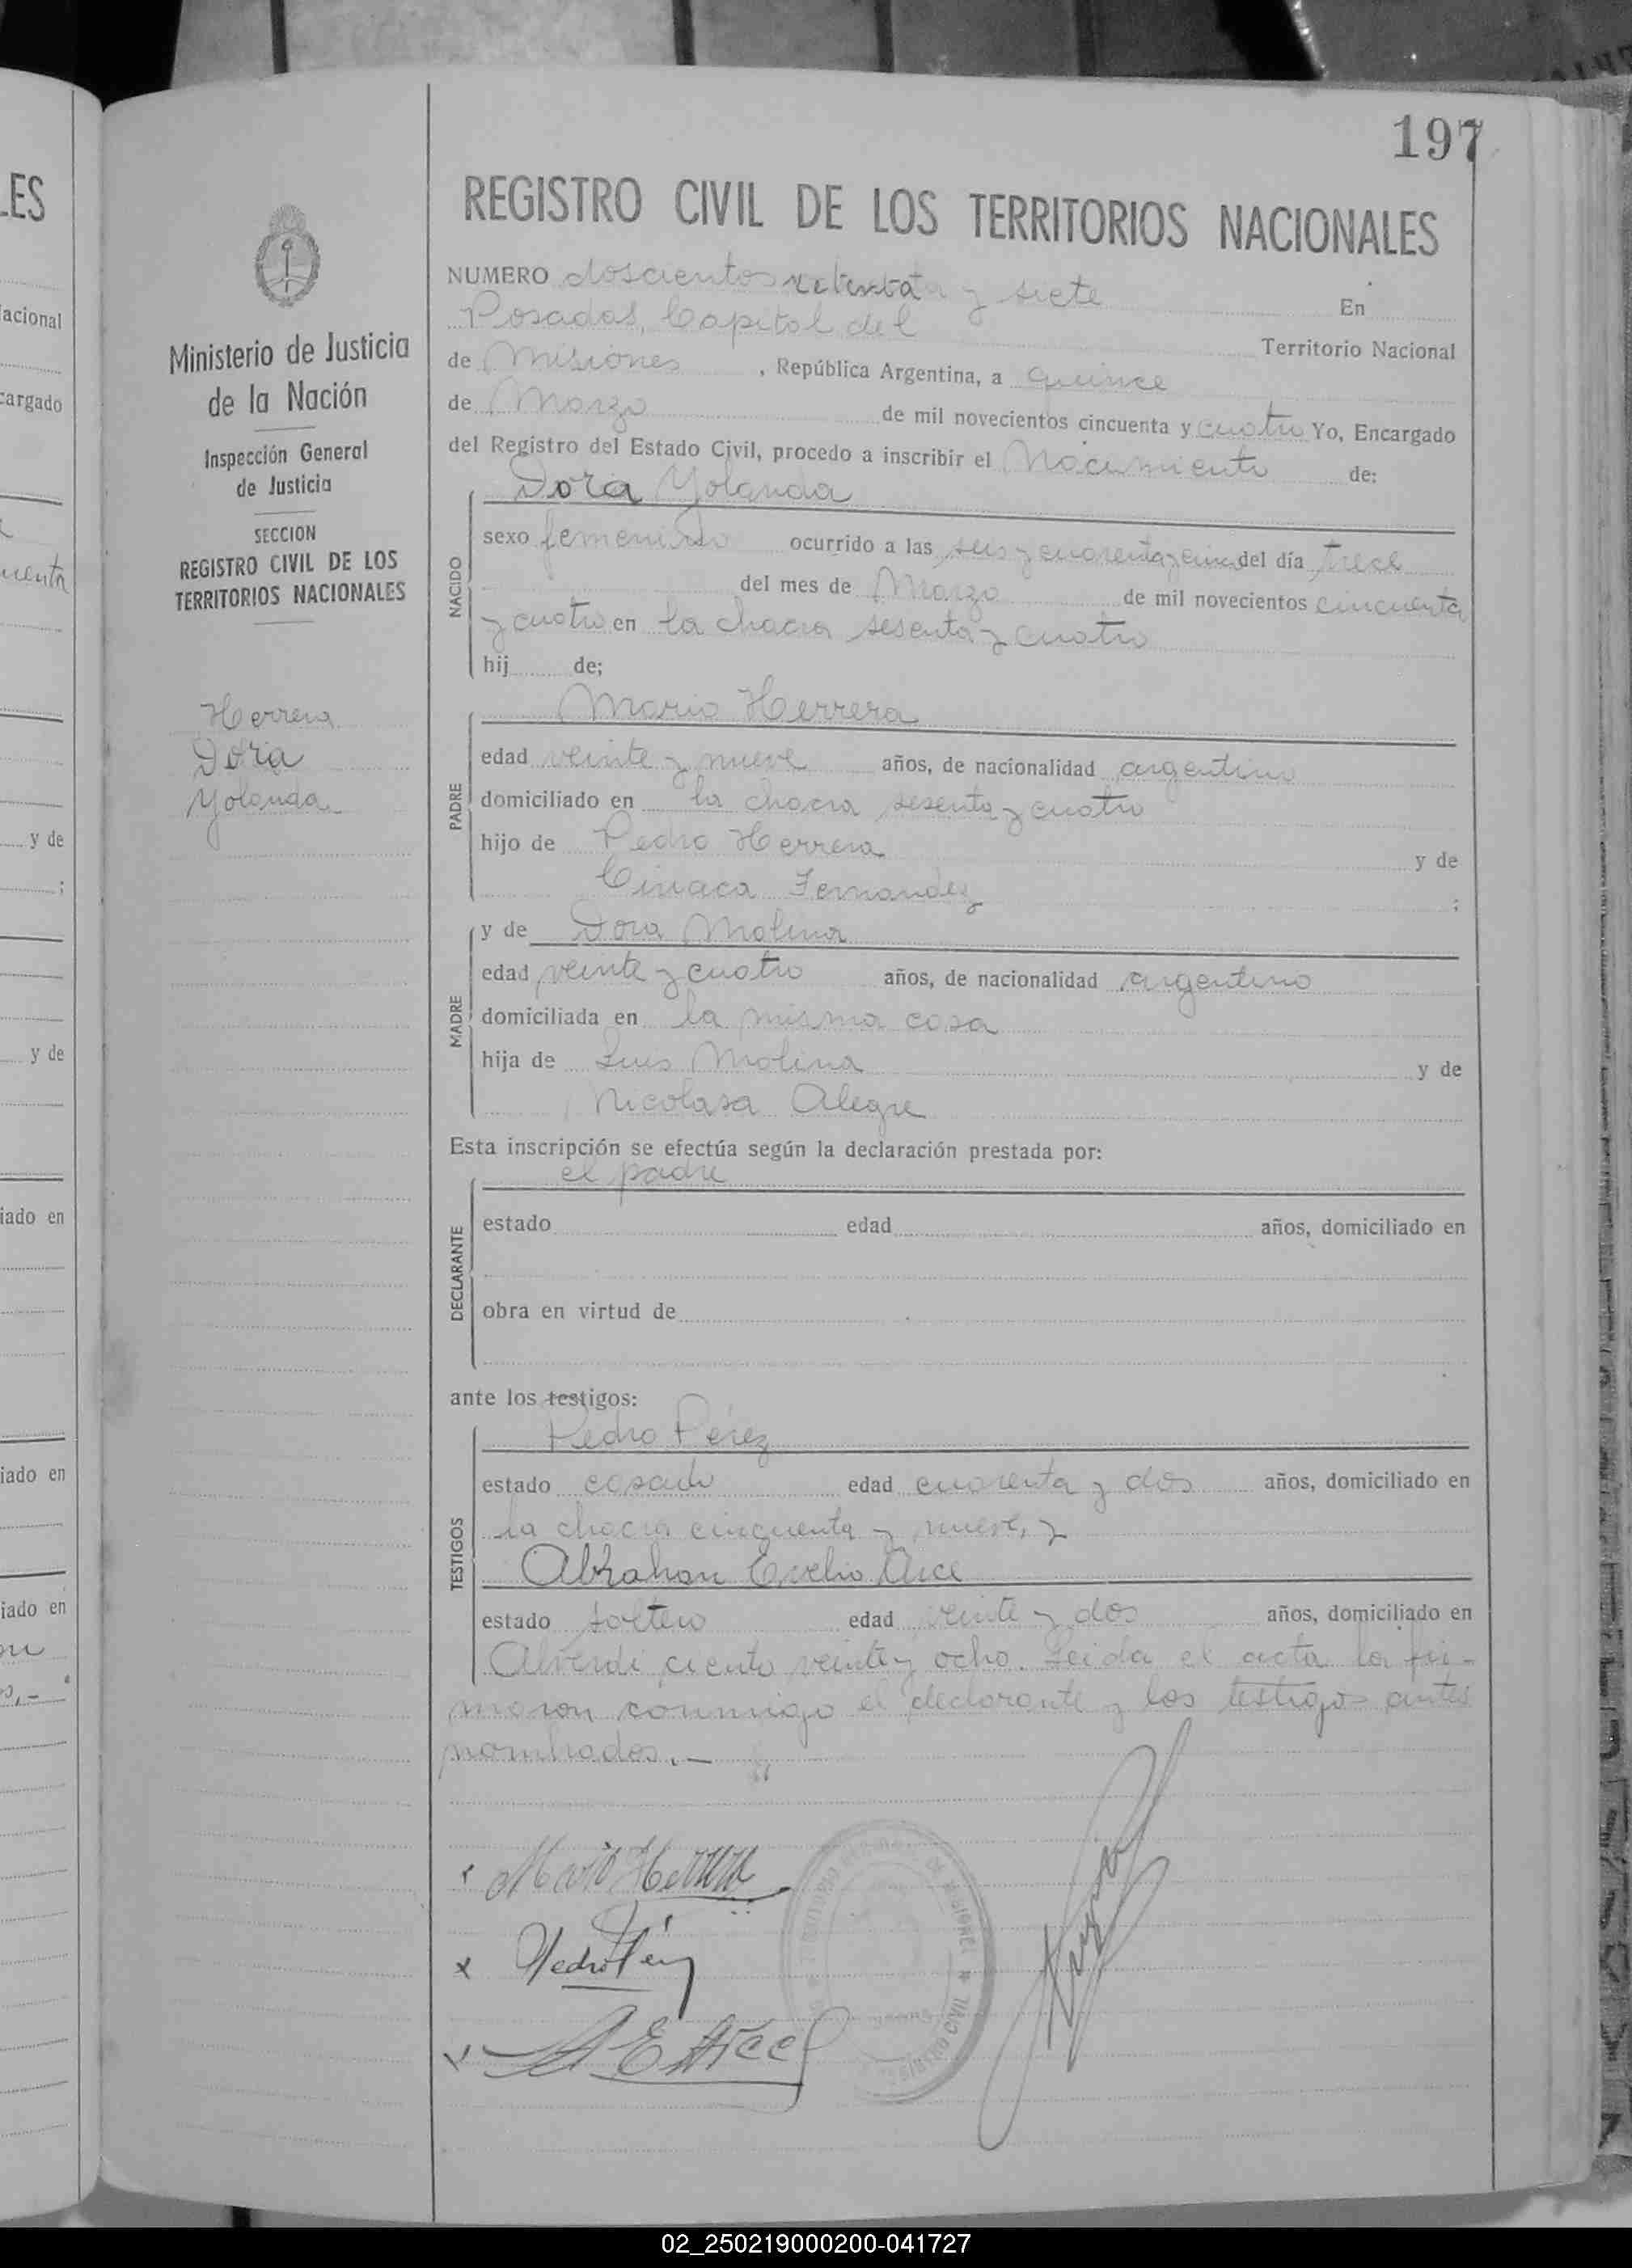 197
REGISTRO CIVIL DE LOS TERRITORIOS NACIONALES
Ministerio de Justicia
de la Nación
Inspección General
de Justicia
SECCION
REGISTRO CIVIL DE LOS
TERRITORIOS NACIONALES
Herrera
Dora
Yolanda
NUMERO doscientos y siete En
Posadas, Capital del Territorio Nacional
de Misiones, República Argentina, a quince
de Marzo de mil novecientos cincuenta y cuatro Yo, Encargado
del Registro del Estado Civil, procedo a inscribir el Nacimiento de:
Dora Yolanda
NACIDO
sexo femenino ocurrido a las seis y cuarenta y cinco del día trece
del mes de Marzo de mil novecientos cincuenta
y cuatro en la chacra sesenta y cuatro
hij de;
Mario Herrera
PADRE
edad veinte y nueve años, de nacionalidad argentino
domiciliado en la chacra sesenta y cuatro
hijo de Pedro Herrera y de
Ciriaca Fernandez ;
y de Dora Molina
MADRE
edad veinte y cuatro años, de nacionalidad argentino
domiciliada en la misma casa
hija de Luis Molina y de
Nicolasa Alegre
Esta inscripción se efectúa según la declaración prestada por:
el padre
DECLARANTE
estado edad años, domiciliado en
obra en virtud de
ante los testigos:
Pedro Pérez
TESTIGOS
estado casado edad cuarenta y dos años, domiciliado en
la chacra cincuenta y nueve, y
Abrahan Evelio Arce
estado soltero edad veinte y dos años, domiciliado en
Alverdi ciento veinte y ocho. Leida el acta la fir-
maron conmigo el declarante y los testigos antes
nombrados.-
Mario Herrera
Pedro Pérez
A E Arce
REGISTRO CIVIL
ES
acional
cargado
uenta
y de
;
y de
iado en
iado en
iado en
02_250219000200-041727